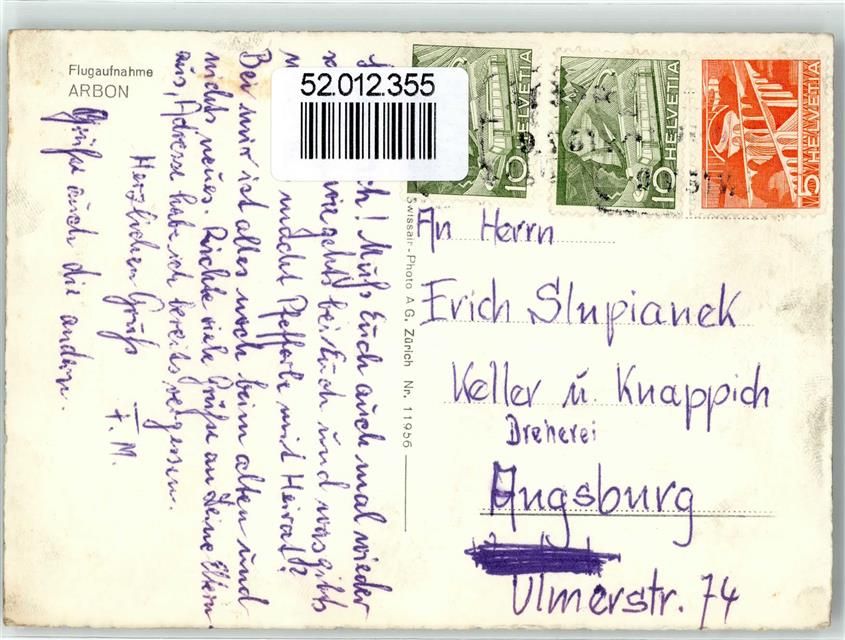 Flugaufnahme
ARBON
52.012.355
10 HELVETIA
10 HELVETIA
5 HELVETIA
Muß Euch auch mal wieder
wie gehts bei Euch und was gibts
macht Pfefferle mit Heirat?
Bei mir ist alles noch beim alten und
nichts neues. Richte viele Grüße an Deine Eltern
aus, Adresse habe ich bereits vergessen.
Herzlichen Gruß
F. M.
Grüße auch die andern.
Swissair-Photo A G. Zürich Nr. 11956
An Herrn
Erich Slupianek
Keller ü. Knappich
Dreherei
Augsburg
Ulmerstr. 74